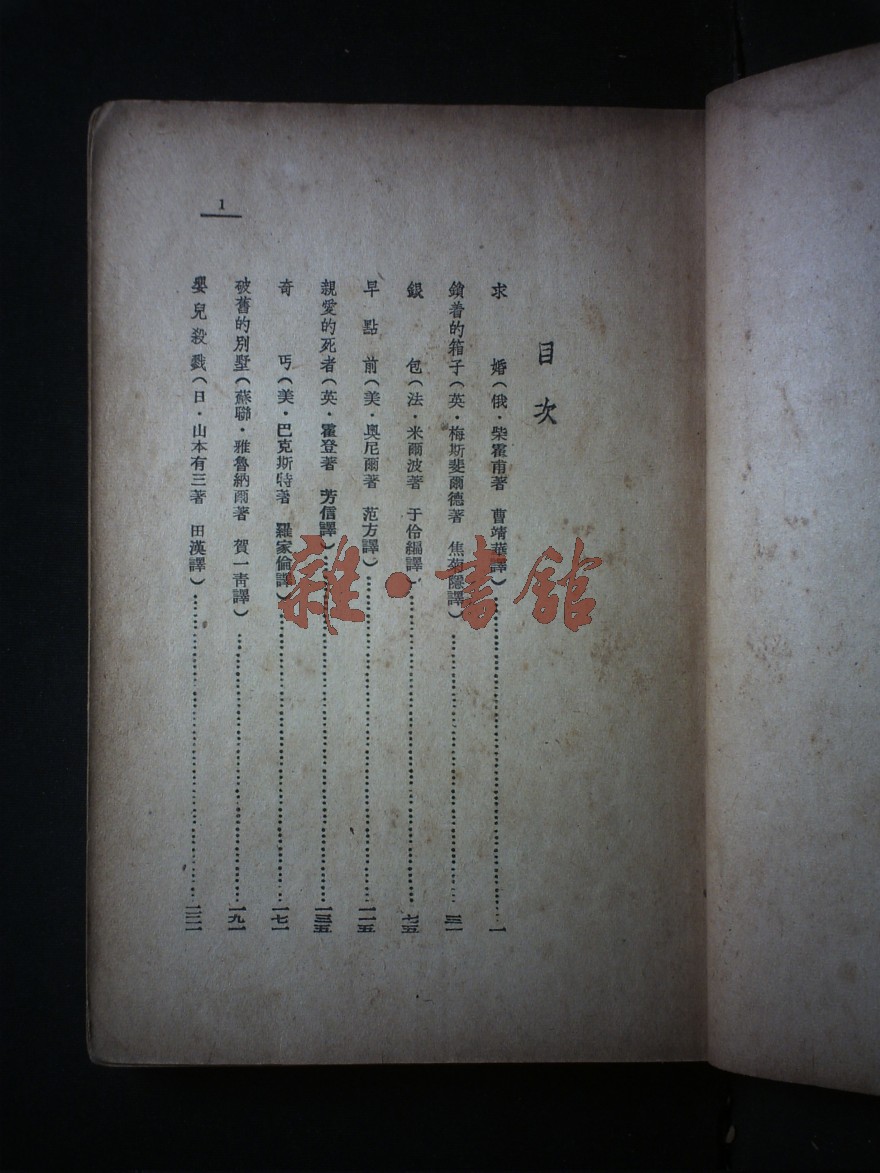 目次
求婚(俄·柴霍甫著 曹靖華譯)……一
鎖着的箱子(英·梅斯斐爾德著 焦菊隱譯)……三一
銀包(法·米爾波著 于伶編譯)……七五
早點前(美·奧尼爾著 范方譯)……一一五
親愛的死者(英·霍登著 芳信譯)……一三五
奇丐(美·巴克斯特著 羅家倫譯)……一七一
破舊的別墅(蘇聯·雅魯納爾著 賀一靑譯)……一九一
嬰兒殺戮(日·山本有三著 田漢譯)……二二一
1
雜·書館